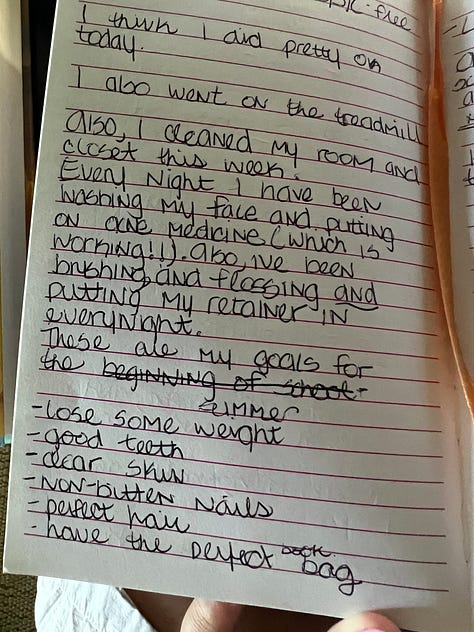 free
I think I did pretty on
today.
I also went on the treadmill
Also, I cleaned my room and
closet this week.
Every Night I have been
washing my face and putting
on acne medicine (which is
working!!). Also, ive been
brushing and flossing and
putting my retainer IN
everyNight.
These are my goals for
the beginning of school-
summer
-lose some weight
-good teeth
-clear skin
-NON-bitten Nails
-perfect hair
-have the perfect book
bag